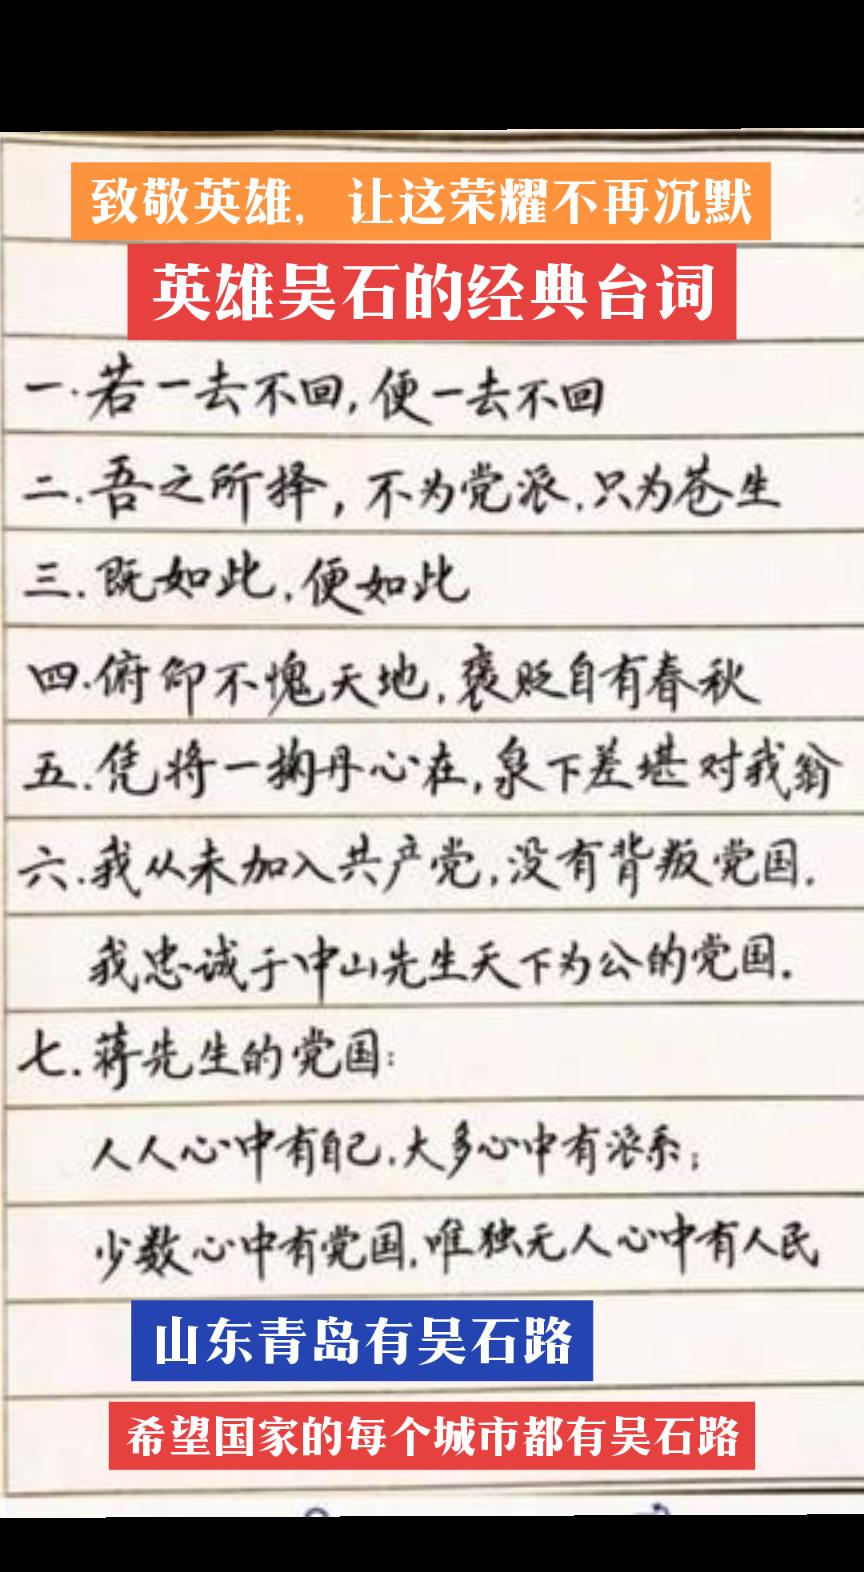 致敬英雄,让这荣耀不再沉默
英雄吴石的经典台词
一.若一去不回,便一去不回
二.吾之所择,不为党派.只为苍生
三.既如此.便如此
四.俯仰不愧天地,褒贬自有春秋
五.凭将一掬丹心在,泉下差堪对我翁
六.我从未加入共产党,没有背叛党国.
我忠诚于中山先生天下为公的党国.
七.蒋先生的党国:
人人心中有自己.大多心中有派系;
少数心中有党国,唯独无人心中有人民
山东青岛有吴石路
希望国家的每个城市都有吴石路